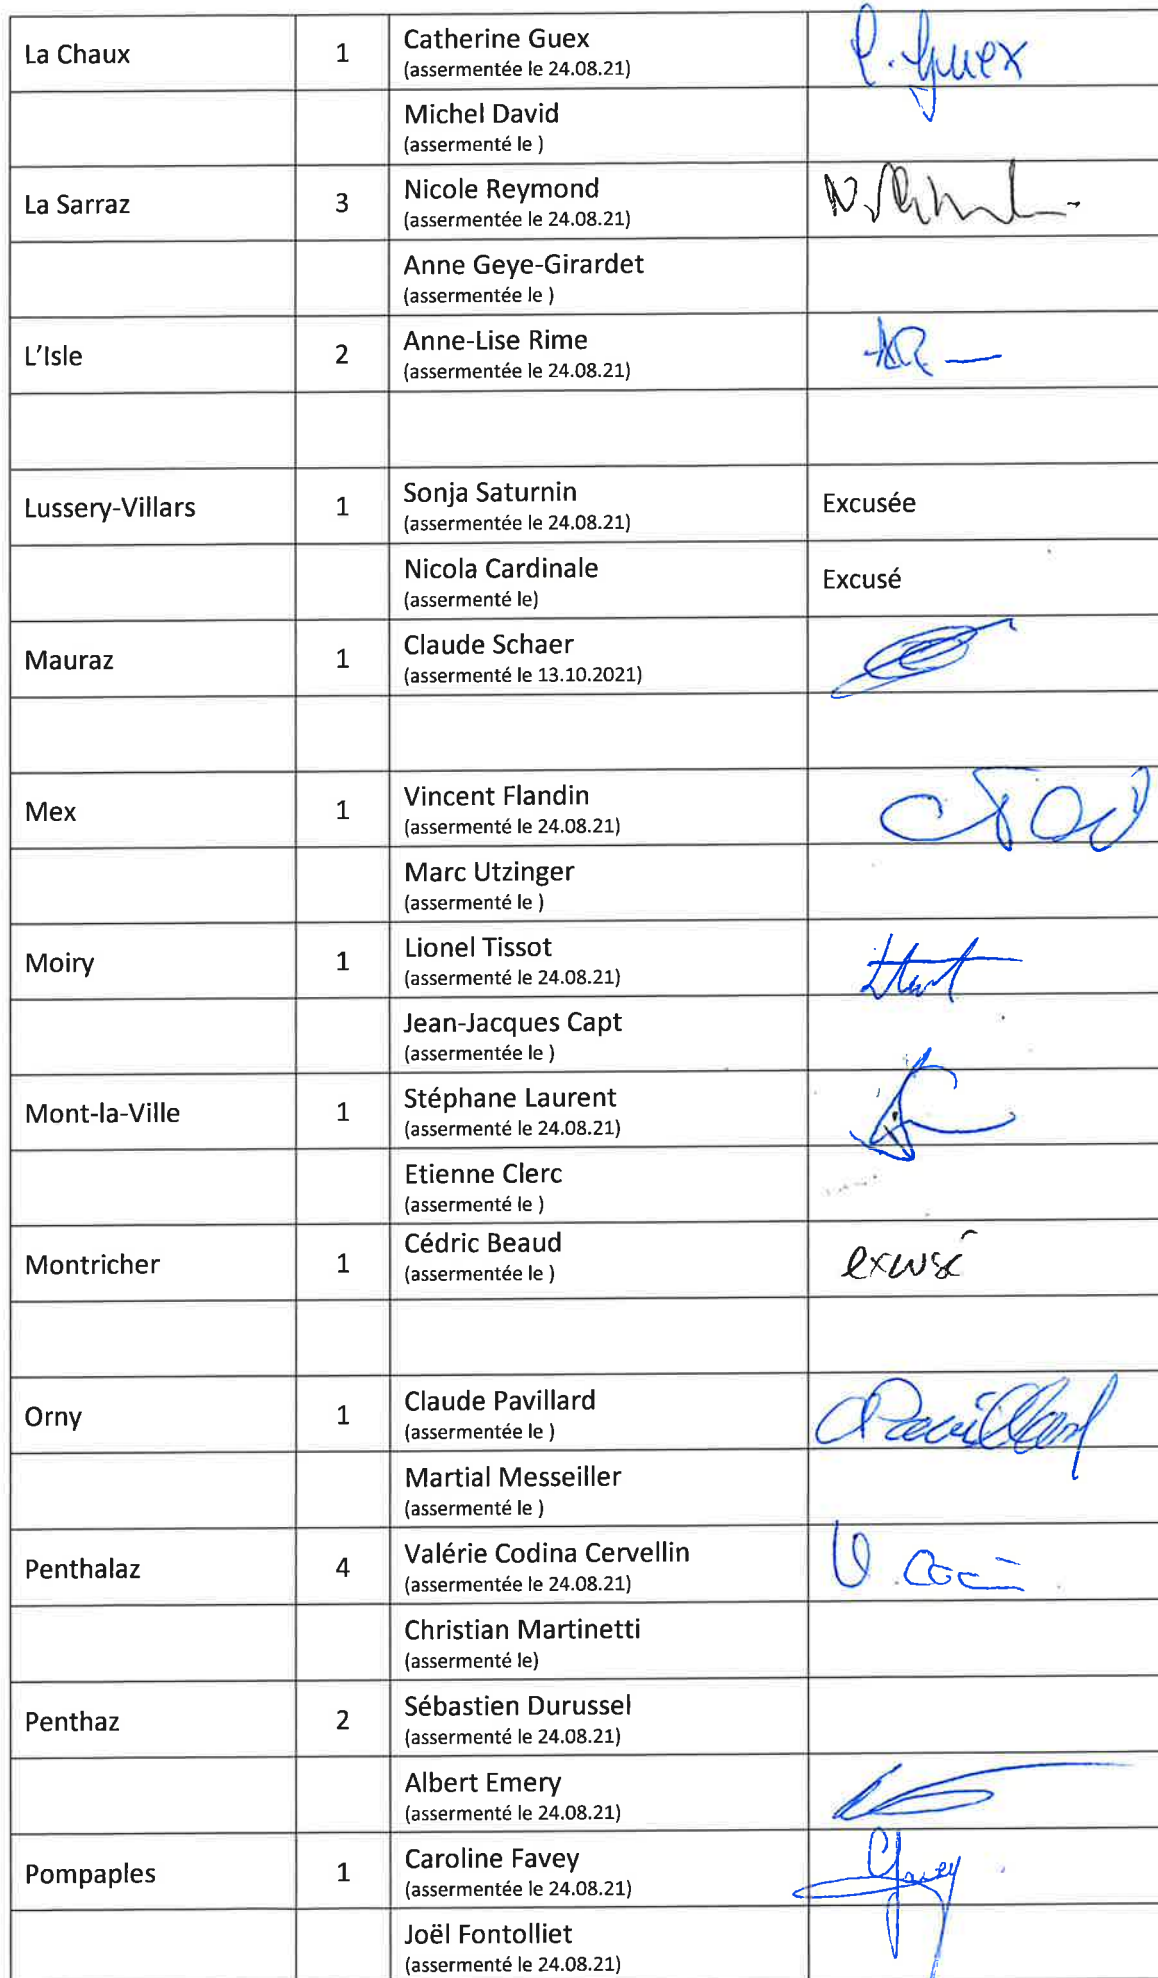 La Chaux 1 Catherine Guex C. Guex
(assermentée le 24.08.21)
Michel David
(assermenté le )
La Sarraz 3 Nicole Reymond
(assermentée le 24.08.21)
Anne Geye-Girardet
(assermentée le )
L'Isle 2 Anne-Lise Rime
(assermentée le 24.08.21)
Lussery-Villars 1 Sonja Saturnin Excusée
(assermentée le 24.08.21)
Nicola Cardinale Excusé
(assermenté le)
Mauraz 1 Claude Schaer
(assermenté le 13.10.2021)
Mex 1 Vincent Flandin
(assermenté le 24.08.21)
Marc Utzinger
(assermenté le )
Moiry 1 Lionel Tissot
(assermentée le 24.08.21)
Jean-Jacques Capt
(assermentée le )
Mont-la-Ville 1 Stéphane Laurent
(assermenté le 24.08.21)
Etienne Clerc
(assermenté le )
Montricher 1 Cédric Beaud excusé
(assermentée le )
Orny 1 Claude Pavillard CPavillard
(assermentée le )
Martial Messeiller
(assermenté le )
Penthalaz 4 Valérie Codina Cervellin
(assermentée le 24.08.21)
Christian Martinetti
(assermenté le)
Penthaz 2 Sébastien Durussel
(assermenté le 24.08.21)
Albert Emery
(assermenté le 24.08.21)
Pompaples 1 Caroline Favey
(assermentée le 24.08.21)
Joël Fontolliet
(assermentée le 24.08.21)